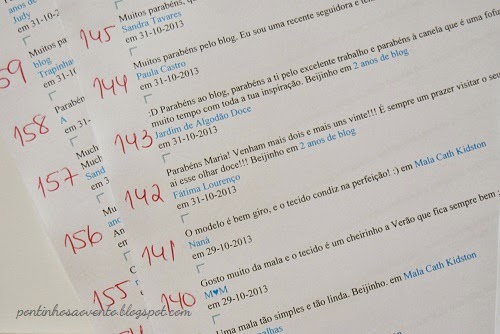 Judy
em 31-10
Muitos pa
blog
Trapinha
em 31-1
59
Parabén
A
em 31-
158
Much
Much
Sand
em 3
157
Mui
ano
An
em
156
155
145
Muitos parabéns,
Sandra Tavares
em 31-10-2013
Muitos parabéns pelo blog. Eu sou uma recente seguidora e
Paula Castro
em 31-10-2013
144
:D Parabéns ao blog, parabéns a ti pelo excelente trabalho e parabéns à canela que é uma fofu
muito tempo com toda a tua inspiração. Beijinho em 2 anos de blog
Jardim de Algodão Doce
em 31-10-2013
143
Parabéns Maria! Venham mais dois e mais uns vinte!!! É sempre um prazer visitar o seu
ai esse olhar doce!!! Beijinho em 2 anos de blog
Fátima Lourenço
em 31-10-2013
142
O modelo é bem giro, e o tecido condiz na perfeição! :) em Mala Cath Kidston
Naná
em 29-10-2013
141
Gosto muito da mala e o tecido é um cheirinho a Verão que fica sempre bem
M♥M
em 29-10-2013
140
Uma mala tão simples e tão linda. Beijinho. em Mala Cath Kidston
pontinhosaovento.blogspot.com